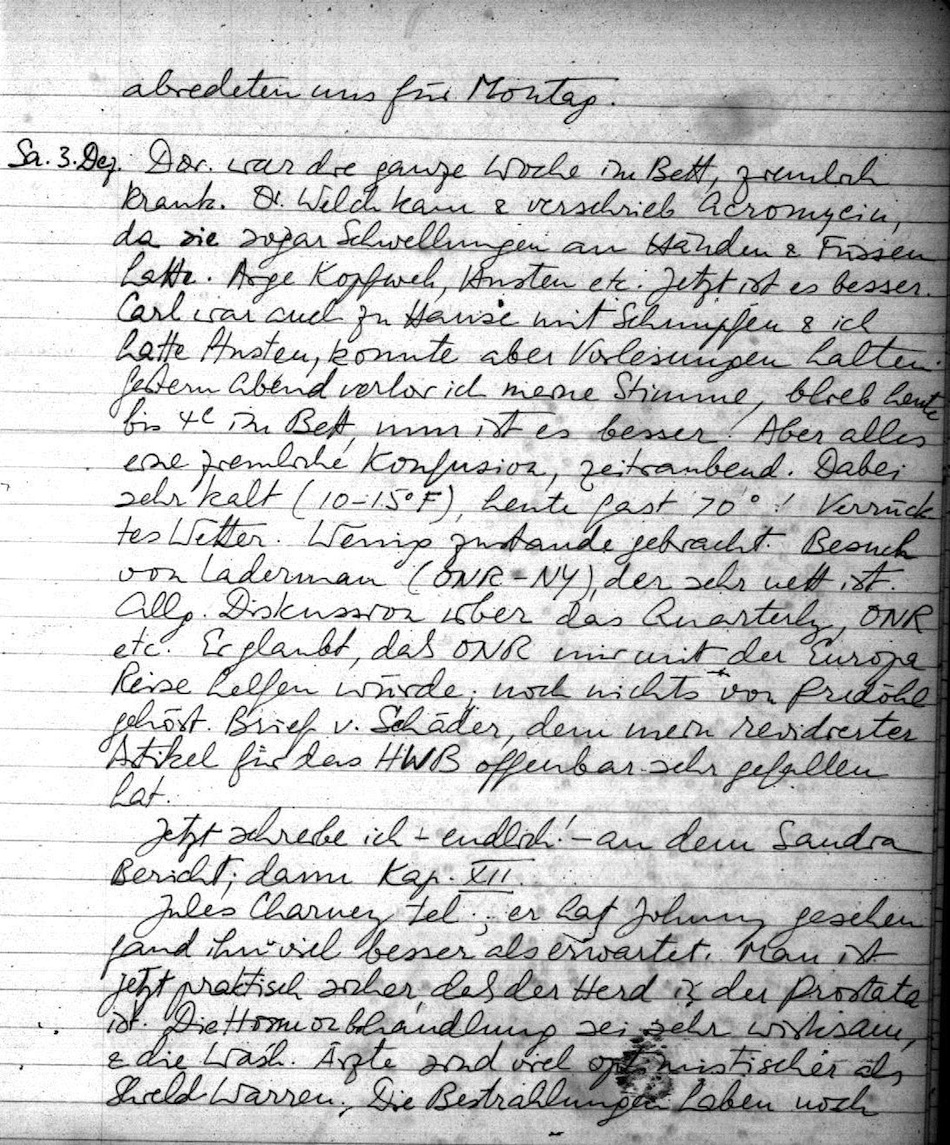 abredeten uns für Montag.
Sa. 3. Dez. Dor. war die ganze Woche im Bett, ziemlich
krank. Dr. Welch kam & verschrieb Acromycin,
da sie sogar Schwellungen an Händen & Füssen
hatte. Arge Kopfweh, Husten etc. Jetzt ist es besser.
Carl war auch zu Hause mit Schnupfen & ich
hatte Husten, konnte aber Vorlesungen halten.
Gestern Abend verlor ich meine Stimme, blieb heute
bis 4h im Bett, nun ist es besser! Aber alles
eine ziemliche Konfusion, zeitraubend. Dabei
sehr kalt (10-15°F), heute fast 70°! Verrück
tes Wetter. Wenig zustande gebracht. Besuch
von Laderman (ONR-NY), der sehr nett ist.
Allg. Diskussion über das Quarterly, ONR
etc. Er glaubt, daß ONR mir mit der Europa
Reise helfen würde; noch nichts von Predöhl
gehört. Brief v. Schäder, dem mein revidierter
Artikel für das HWB offenbar sehr gefallen
hat.
Jetzt schreibe ich - endlich! - an dem Sandia
Bericht; dann Kap. XII.
Jules Charney tel.; er hat Johnny gesehen
fand ihn viel besser als erwartet. Man ist
jetzt praktisch sicher, daß der Herd in der Prostata
ist. Die Hormonbhandlung sei sehr wirksam,
& die Wash. Ärzte sind viel optimistischer als
Shield Warren. Die Bestrahlungen haben noch